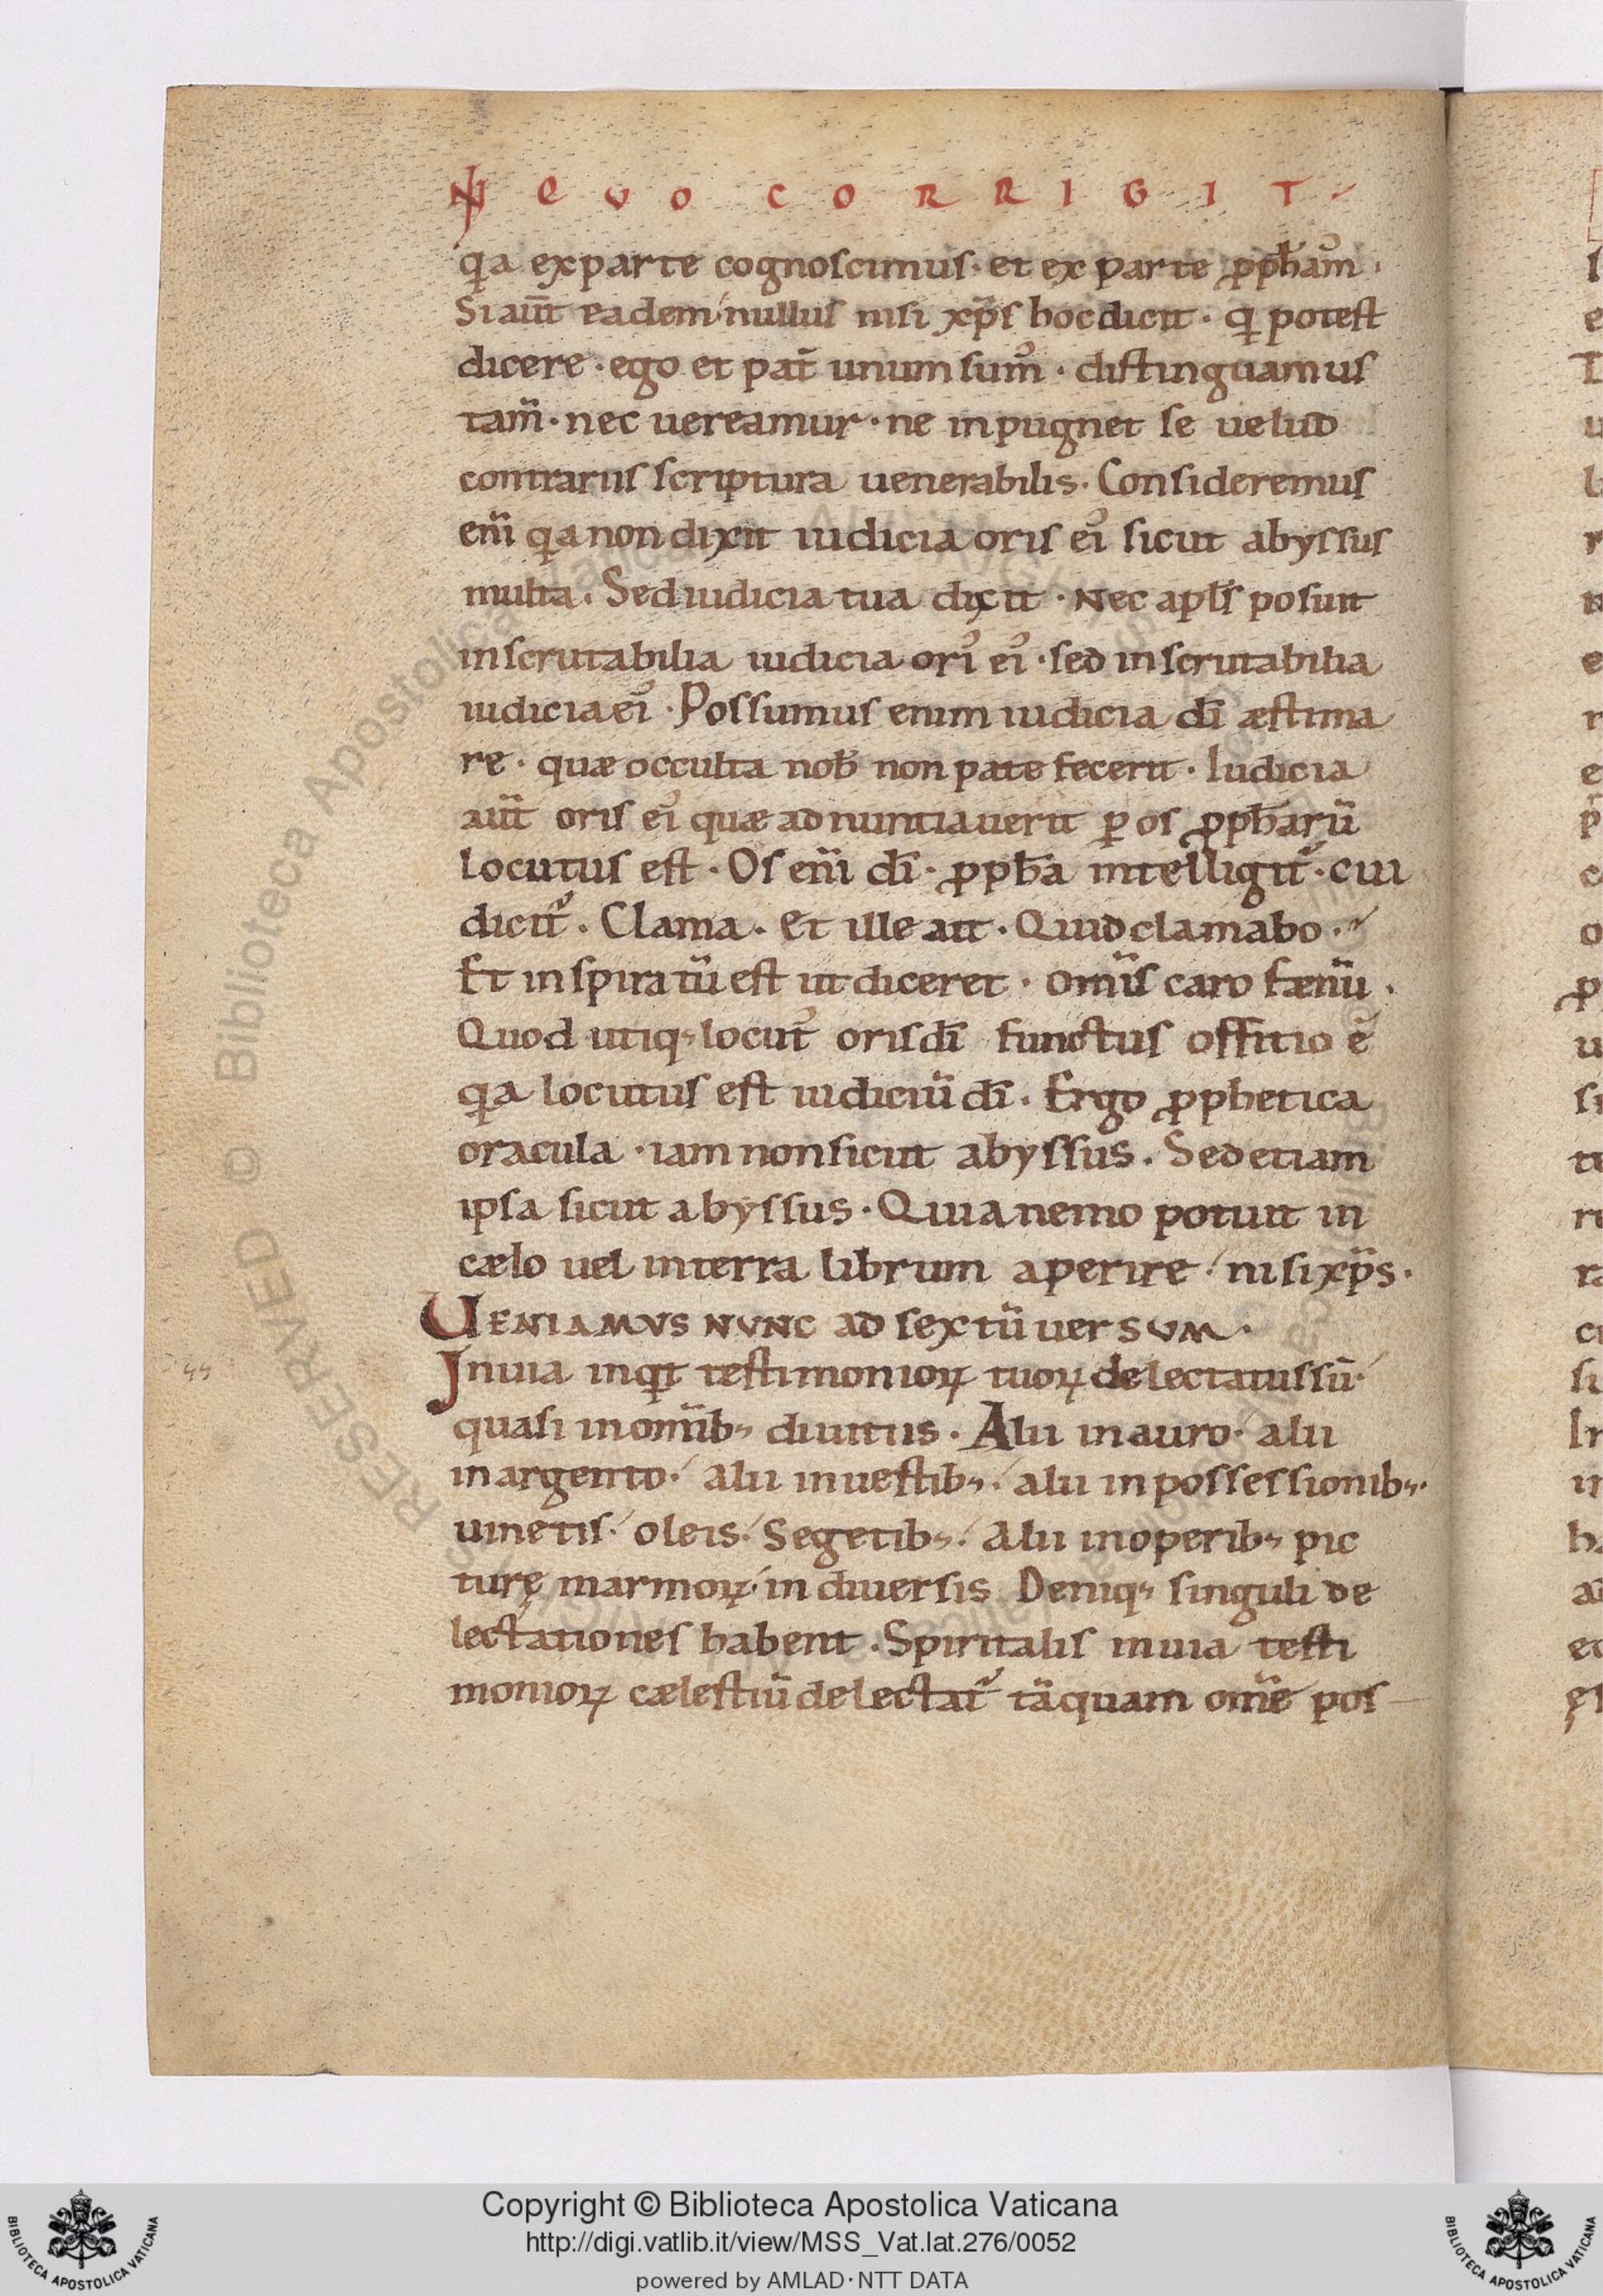 IN EVO CORRIGIT
qa exparte cognoscimus· et ex parte pphamꝰ·
Si aūt eadem nullus nisi xp̄s hoc dicit· q potest
dicere· ego et pat̄ unum sumꝰ· distinguamus
tam̄· nec uereamur· ne inpugnet se uelud
contrariis scriptura uenerabilis· Consideremus
eni̅ qa non dixit iudicia oris eiꝰ sicut abyssus
multa. Sed iudicia tua dixit· Nec apl̄s posuit
inscrutabilia iudicia oriꝰ eiꝰ· sed inscrutabilia
iudicia eiꝰ· Possumus enim iudicia dī æstima
re· quæ occulta nob̄ non pate fecerit· Iudicia
aūt oris eiꝰ quæ adnuntiauerit ꝑ os ꝓph̄arū
locutus est· Os eni̅ dī· ꝓph̄a intelligit᷑· cui
dicit᷑. Clama. Et ille ait· Quid clamabo·
Et inspiratū est ut diceret· Omīs caro fænū.
Quod utiq; locutꝰ oris dī functus offitio ē
qa locutus est iudiciū dī. Ergo ꝓphetica
oracula· iam non sicut abyssus. Sed etiam
ipsa sicut abyssus· Quia nemo potuit in
cælo uel in terra librum aperire· nisi xp̄s·
UENIAMVS NVNC ad sextū uersVM·
In uia inqt testimonioꝝ tuoꝝ delectatus sū·
quasi in omīb; diuitiis· Alii in auro· alii
in argento· alii in uestib;· alii in possessionib;·
uinetis· oleis· Segetib;· Alii in operib; pic
turę marmoꝝ· in diuersis Deniq; singuli de
lectationes habent· Spiritalis in uia testi
monioꝝ cælestiū delectat᷑ tāquam om̄e pos
Copyright © Biblioteca Apostolica Vaticana
http://digi.vatlib.it/view/MSS_Vat.lat.276/0052
powered by AMLAD·NTT DATA
BIBLIOTECA APOSTOLICA VATICANA
BIBLIOTECA APOSTOLICA VATICANA